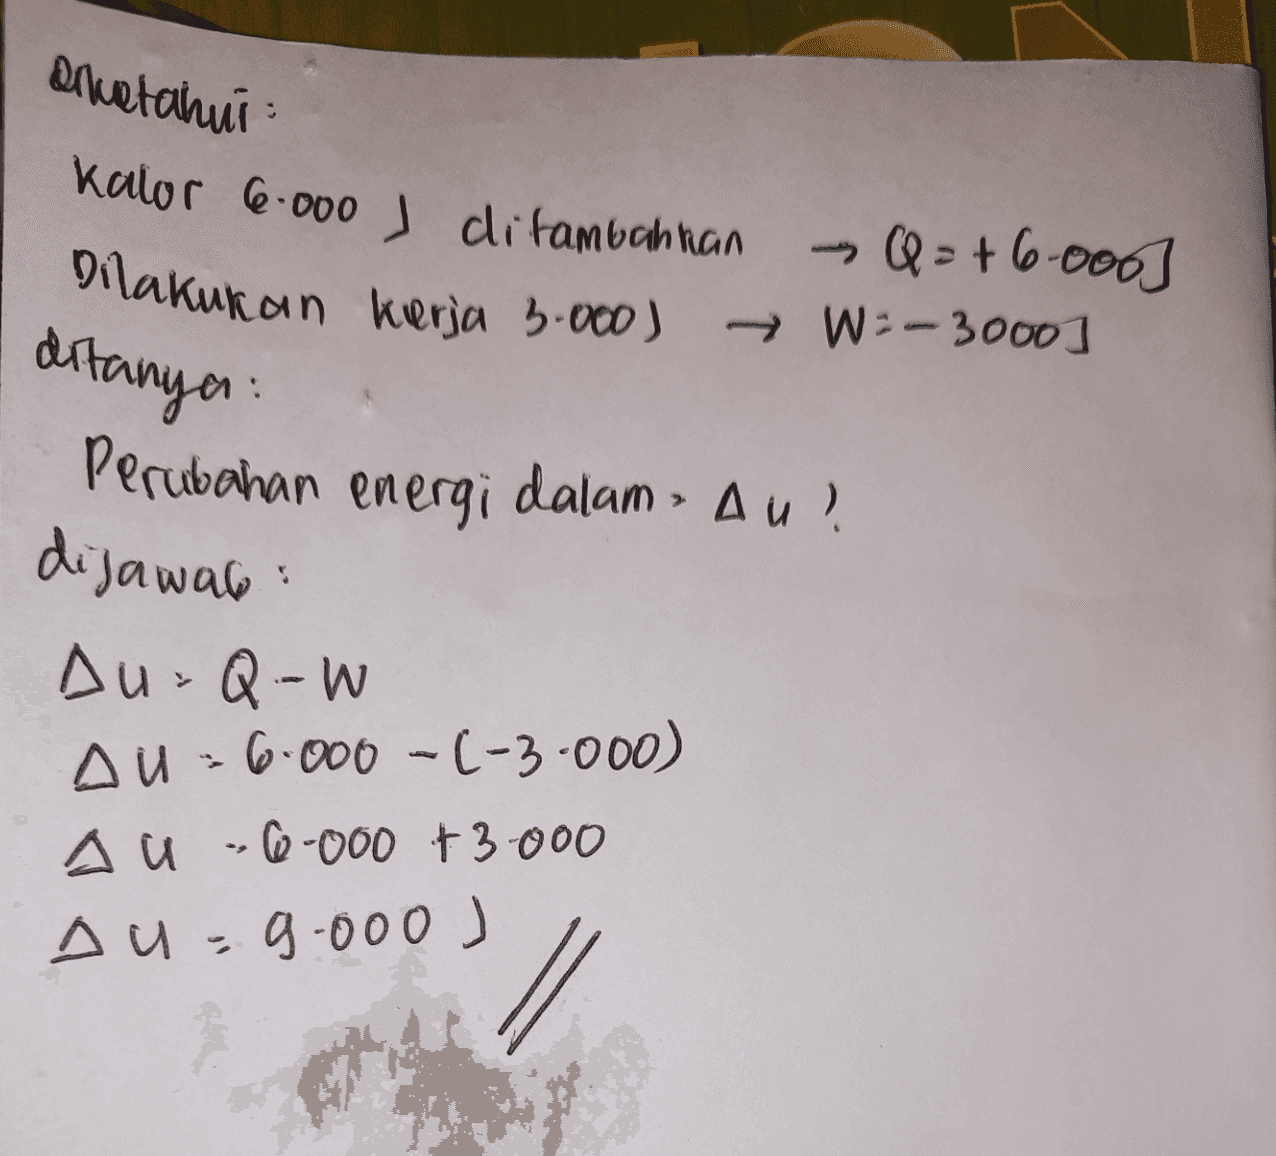 Diketahui :
Kalor 6.000 J ditambahkan → Q = + 6.000 J
Dilakukan kerja 3.000 J → W = - 3000 J
ditanya :
Perubahan energi dalam = Δu ?
dijawab :
Δu = Q - W
Δu = 6.000 - (-3.000)
Δu = 6.000 + 3.000
Δu = 9.000 J //